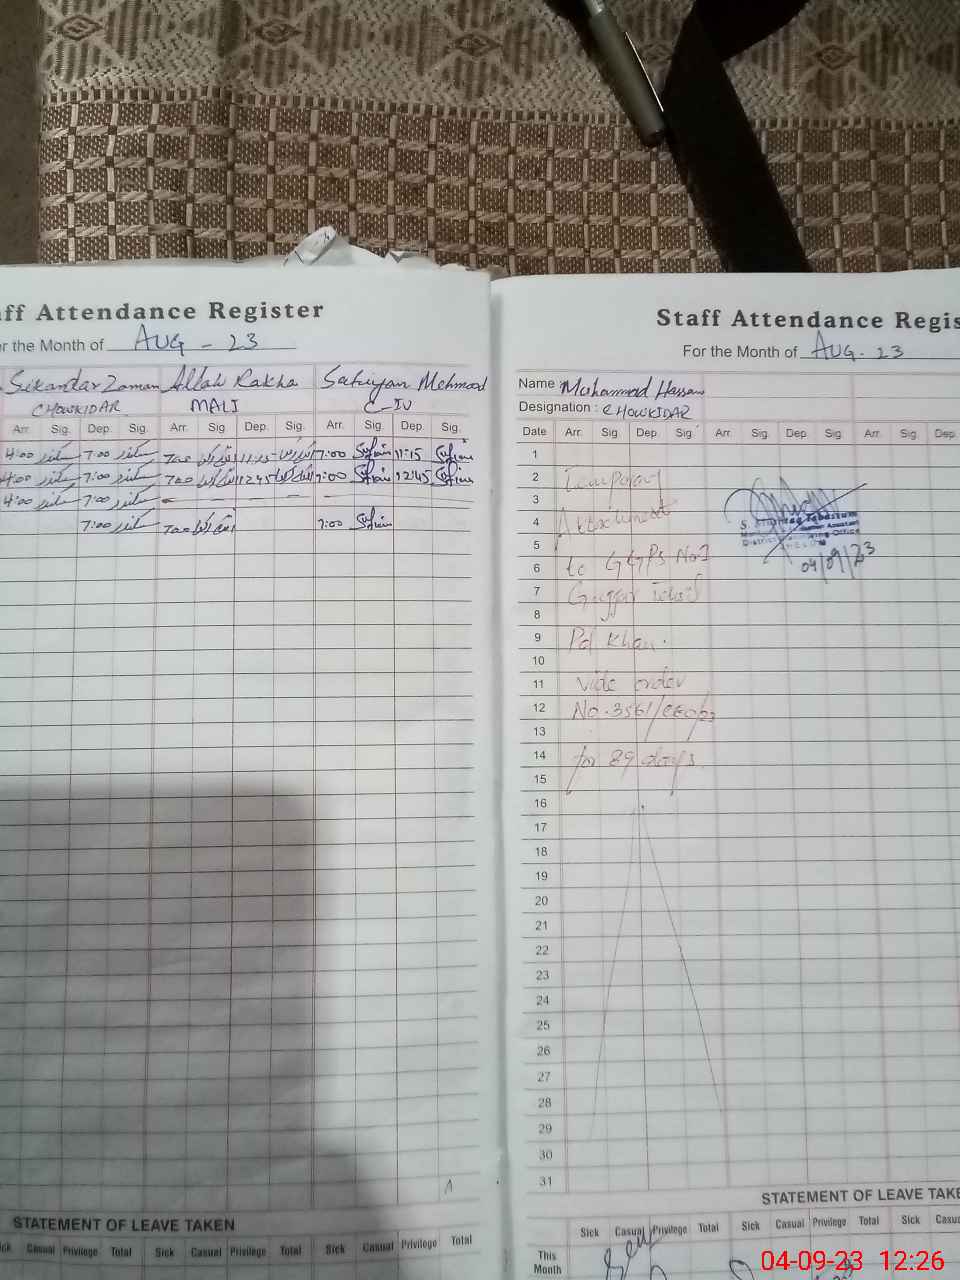 ff Attendance Register
or the Month of AUG - 23
Sikandar Zaman Allah Rakha Sufiyan Mehmood
CHOWKIDAR MALI C-IV
Arr. Sig. Dep. Sig. Arr. Sig Dep. Sig. Arr. Sig. Dep. Sig.
4:00 7:00 7:00 11:15 7:00 Sufian 11:15 Sufian
4:00 7:00 7:00 12:45 7:00 Sufian 12:45 Sufian
4:00 7:00 - - - -
7:00 7:00 7:00 Sufian
STATEMENT OF LEAVE TAKEN
Sick Casual Privilege Total Sick Casual Privilege Total Sick Casual Privilege Total
Staff Attendance Regis
For the Month of AUG. 23
Name : Muhammad Hassan
Designation : CHOWKIDAR
Date Arr. Sig Dep. Sig. Arr. Sig. Dep. Sig. Arr. Sig. Dep.
1
2 Temporary
3
4 Attachment
5
6 to GGPS No.1
7 Gujjar
8
9 Pd Khan.
10
11 vide order
12 No. 3561/CEO/23
13
14 for 89 days.
15
16
17
18
19
20
21
22
23
24
25
26
27
28
29
30
31
District Monitoring Office
04/09/23
STATEMENT OF LEAVE TAKE
Sick Casual Privilege Total Sick Casual Privilege Total Sick Casua
This
Month
04-09-23 12:26